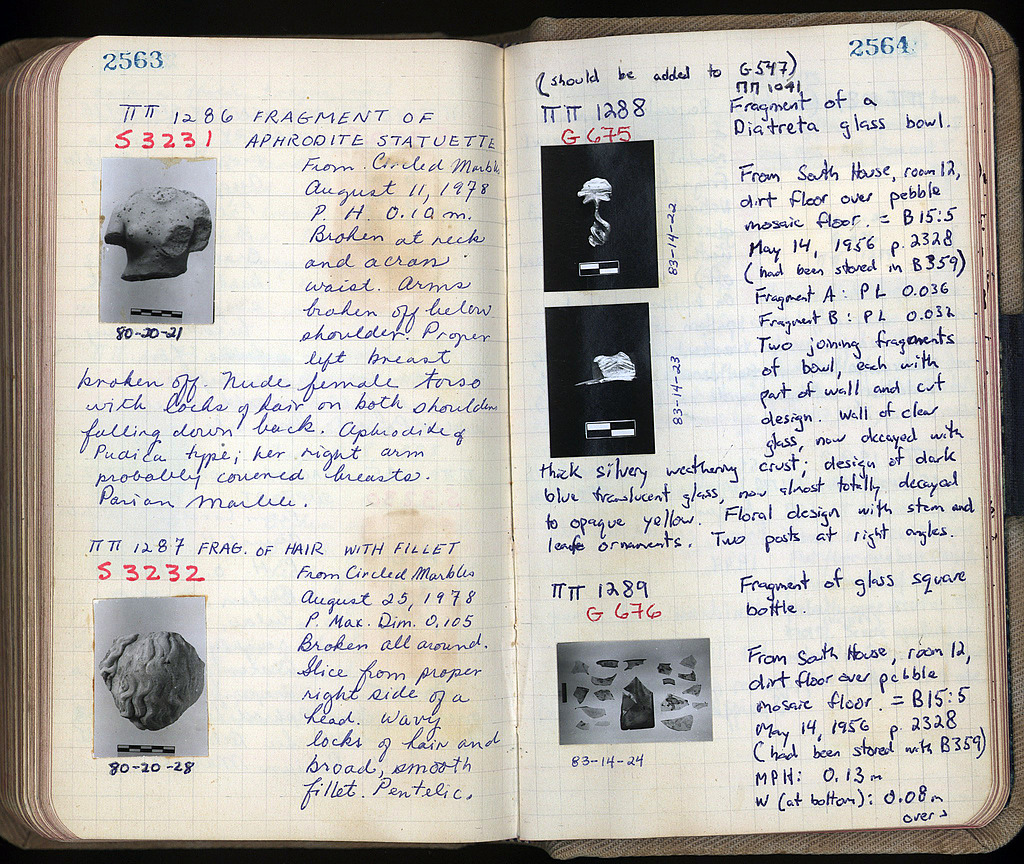 2563
ΠΠ 1286 FRAGMENT OF
S 3231 APHRODITE STATUETTE
From Circled Marbles
August 11, 1978
P. H. 0.10 m.
Broken at neck
and across
waist. Arms
broken off below
shoulder. Proper
left breast
80-20-21
broken off. Nude female torso
with locks of hair on both shoulders
falling down back. Aphrodite of
Pudica type; her right arm
probably covered breasts.
Parian Marble.
ΠΠ 1287 FRAG. OF HAIR WITH FILLET
S 3232
From Circled Marbles
August 25, 1978
P. Max. Dim. 0.105
Broken all around.
Slice from proper
right side of a
head. Wavy
locks of hair and
broad, smooth
fillet. Pentelic.
80-20-28
2564
(should be added to G 547)
ΠΠ 1041
ΠΠ 1288
G 675
Fragment of a
Diatreta glass bowl.
From South House, room 12,
dirt floor over pebble
mosaic floor. = B 15:5
May 14, 1956 p. 2328
(had been stored in B359)
Fragment A: PL 0.036
Fragment B: PL 0.032
Two joining fragments
of bowl, each with
part of wall and cut
design. Wall of clear
glass, now decayed with
83-14-22
83-14-23
thick silvery weathering crust; design of dark
blue translucent glass, now almost totally decayed
to opaque yellow. Floral design with stem and
leafe ornaments. Two posts at right angles.
ΠΠ 1289
G 676
Fragment of glass square
bottle.
From South House, room 12,
dirt floor over pebble
mosaic floor. = B15:5
May 14, 1956 p. 2328
(had been stored with B359)
MPH: 0.13 m
W (at bottom): 0.08 m
over
83-14-24